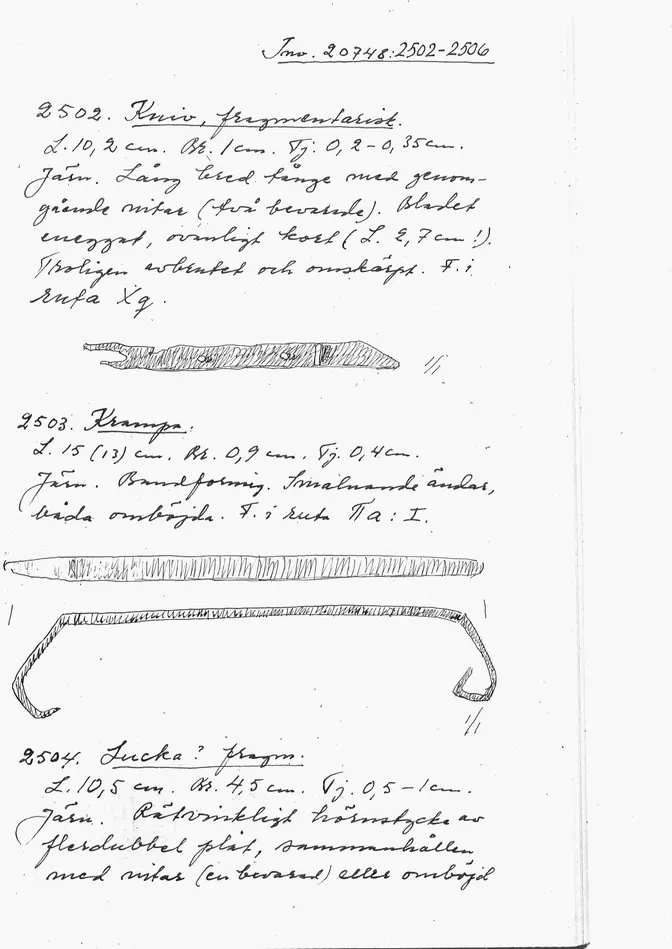 Inv. 20748:2502-2506
2502. Kniv, fragmentarisk.
L. 10,2 cm. Br. 1 cm. Tj. 0,2-0,35 cm.
Järn. Lång bred tånge med genom-
gående nitar (två bevarade). Bladet
eneggat, ovanligt kort (L. 2,7 cm!).
Troligen avbrutet och omskärpt. F. i
ruta Xg.
1/1
2503. Krampa.
L. 15 (13) cm. Br. 0,9 cm. Tj. 0,4 cm.
Järn. Bandformig. Smalnande ändar,
båda omböjda. F. i ruta IIa: I.
1/1
2504. Lucka? fragm.
L. 10,5 cm. Br. 4,5 cm. Tj. 0,5-1 cm.
Järn. Rätvinkligt hörnstycke av
flerdubbel plåt, sammanhållen
med nitar (en bevarad) eller omböjd